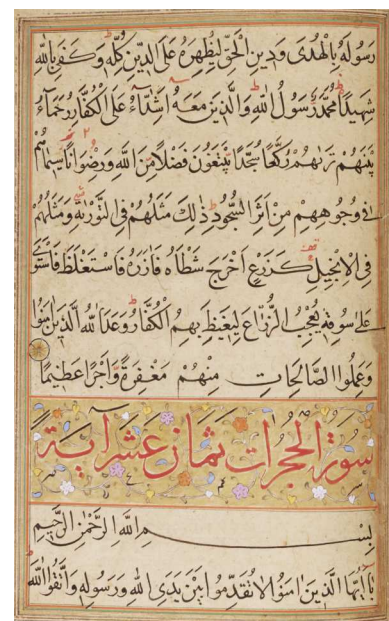 رَسُولَهُ بِالْهُدَى وَدِينِ الْحَقِّ لِيُظْهِرَهُ عَلَى الدِّينِ كُلِّهِ وَكَفَى بِاللَّهِ
شَهِيدًا مُحَمَّدٌ رَسُولُ اللَّهِ وَالَّذِينَ مَعَهُ أَشِدَّاءُ عَلَى الْكُفَّارِ رُحَمَاءُ
بَيْنَهُمْ تَرَاهُمْ رُكَّعًا سُجَّدًا يَبْتَغُونَ فَضْلًا مِنَ اللَّهِ وَرِضْوَانًا سِيمَاهُمْ
فِي وُجُوهِهِمْ مِنْ أَثَرِ السُّجُودِ ذَلِكَ مَثَلُهُمْ فِي التَّوْرَيةِ وَمَثَلُهُمْ
فِي الْإِنْجِيلِ كَزَرْعٍ أَخْرَجَ شَطْأَهُ فَآزَرَهُ فَاسْتَغْلَظَ فَاسْتَوَى
عَلَى سُوقِهِ يُعْجِبُ الزُّرَّاعَ لِيَغِيظَ بِهِمُ الْكُفَّارَ وَعَدَ اللَّهُ الَّذِينَ آمَنُوا
وَعَمِلُوا الصَّالِحَاتِ مِنْهُمْ مَغْفِرَةً وَأَجْرًا عَظِيمًا
سورة الحجرات ثمان عشر اية
بِسْمِ اللَّهِ الرَّحْمَنِ الرَّحِيمِ
يَا أَيُّهَا الَّذِينَ آمَنُوا لَا تُقَدِّمُوا بَيْنَ يَدَيِ اللَّهِ وَرَسُولِهِ وَاتَّقُوا اللَّهَ